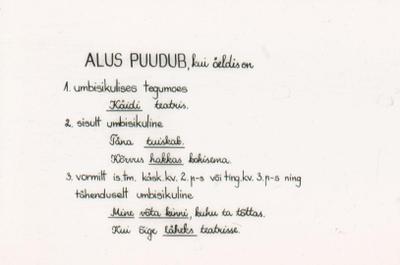 ALUS PUUDUB, kui öeldis on
1. umbisikulises tegumoes
Käidi teatris.
2. sisult umbisikuline
Täna tuiskab.
Kõrvus hakkas kohisema.
3. vormilt is.tm. käsk.kv. 2.p-s või ting.kv. 3.p-s ning
tähenduselt umbisikuline
Mine võta kinni, kuhu ta tõttas.
Kui õige läheks teatrisse.